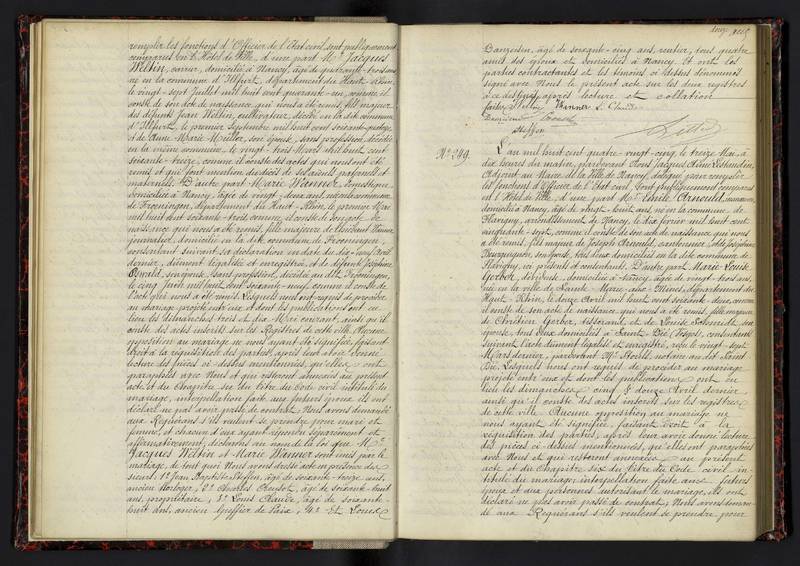 remplir les fonctions d'Officier de l'Etat civil, sont publiquement
comparus en l'Hôtel de Ville, d'une part Mr Jacques
Weltin, domicilié à Nancy, âgé de quarante-trois ans
né en la commune d'Illfurt, département du Haut-Rhin,
le vingt-sept Juillet mil huit cent quarante-un, comme il
conste de son acte de naissance qui nous a été remis, fils majeur
des défunts Jean Weltin, cultivateur, décédé en la dite commune
d'Illfurt, le premier Septembre mil huit cent soixante-quatorze
et de Anne Marie Müller, son épouse, sans profession, décédée
en la même commune, le vingt-trois Mars mil huit cent
soixante-treize, comme il conste des actes qui nous ont été
remis et qui font mention du décès de ses aïeuls paternels et
maternels. D'autre part Marie Wanner, domestique,
domiciliée à Nancy, âgée de vingt-deux ans, née en la commune
de Froeningen, département du Haut-Rhin, le premier Mai
mil huit cent soixante-trois, comme il conste de son acte de
naissance qui nous a été remis, fille majeure de Wanner,
journalier, domicilié en la dite commune de Froeningen,
consentant suivant sa déclaration en date du dix-neuf Avril
dernier, dûment légalisée et enregistrée, et de défunte Joséphine
Oswald, son épouse, sans profession, décédée au dit Froeningen,
le cinq Juin mil huit cent soixante-neuf, comme il conste de
l'acte qui nous a été remis. Lesquels nous ont requis de procéder
au mariage projeté entre eux et dont les publications ont eu
lieu les dimanches trois et dix Mai courant, ainsi qu'il
conste des actes inscrits sur les Registres de cette ville. Aucune
opposition au mariage ne nous ayant été signifiée, faisant
droit à la réquisition des parties, après leur avoir donné
lecture des pièces ci-dessus mentionnées, qu'elles ont
paraphées avec Nous et qui resteront annexées au présent
acte, et du Chapitre six du titre du Code civil intitulé du
mariage, interpellation faite aux futurs époux, ils ont
déclaré ne pas avoir passé de contrat. Nous avons demandé
aux Requérans s'ils veulent se prendre pour mari et
femme, et chacun d'eux ayant répondu séparément et
affirmativement, déclarons au nom de la loi que Mr
Jacques Weltin et Marie Wanner sont unis par le
mariage, de tout quoi Nous avons dressé acte en présence des
sieurs 1° Jean Baptiste Steffen, âgé de soixante-treize ans,
ancien horloger, 2° Charles Creusot, âgé de soixante-huit
ans, propriétaire, 3° Louis Claude, âgé de soixante-
huit ans, ancien Greffier de Paix, 4° et Louis
Danzeisen, âgé de soixante-cinq ans, rentier, tous quatre
amis des époux et domiciliés à Nancy. Et ont les
parties contractantes et les témoins ci-dessus dénommés
signé avec Nous le présent acte sur les deux registres
à ce destinés, après lecture et collation
faites. Weltin Wanner L. Claude
Danzeisen Creusot
Steffen
No 249.
L'an mil huit cent quatre-vingt-cinq, le treize Mai, à
dix heures du matin, pardevant Nous Jacques
Adjoint au Maire de la Ville de Nancy, délégué pour remplir
les fonctions d'Officier de l'Etat civil, sont publiquement comparus
en l'Hôtel de Ville, d'une part Mr Emile Arnould,
domicilié à Nancy, âgé de vingt-huit ans, né en la commune de
Flavigny, arrondissement de Nancy, le dix février mil huit cent
cinquante-sept, comme il conste de son acte de naissance qui nous
a été remis, fils majeur de Joseph Arnould, cantonnier, et de Joséphine
Bourguignon, son épouse, tous deux domiciliés en la dite commune de
Flavigny, ici présents et consentants. D'autre part Marie Louise
Gerber, domiciliée à Nancy, âgée de vingt-trois ans,
née en la ville de Sainte-Marie-aux-Mines, département du
Haut-Rhin, le douze Avril mil huit cent soixante-deux, comme
il conste de son acte de naissance qui nous a été remis, fille majeure
de Chrétien Gerber, tisserand, et de Louise Schmidt, son
épouse, tous deux domiciliés à Saint-Dié (Vosges), consentant
suivant l'acte dûment légalisé et enregistré, reçu le vingt-sept
Mars dernier, pardevant Me notaire au dit Saint
Dié. Lesquels nous ont requis de procéder au mariage
projeté entre eux et dont les publications ont eu
lieu les dimanches cinq & douze Avril dernier
ainsi qu'il conste des actes inscrits sur les registres
de cette ville. Aucune opposition au mariage ne
nous ayant été signifiée, faisant droit à la
réquisition des parties, après leur avoir donné lecture
des pièces ci-dessus mentionnées, qu'elles ont paraphées
avec Nous et qui resteront annexées au présent
acte et du Chapitre six du titre du Code civil in-
titulé du mariage, interpellation faite aux futurs
époux et aux personnes autorisant le mariage, ils ont
déclaré ne pas avoir passé de contrat, Nous avons deman-
dé aux Requérans s'ils veulent se prendre pour